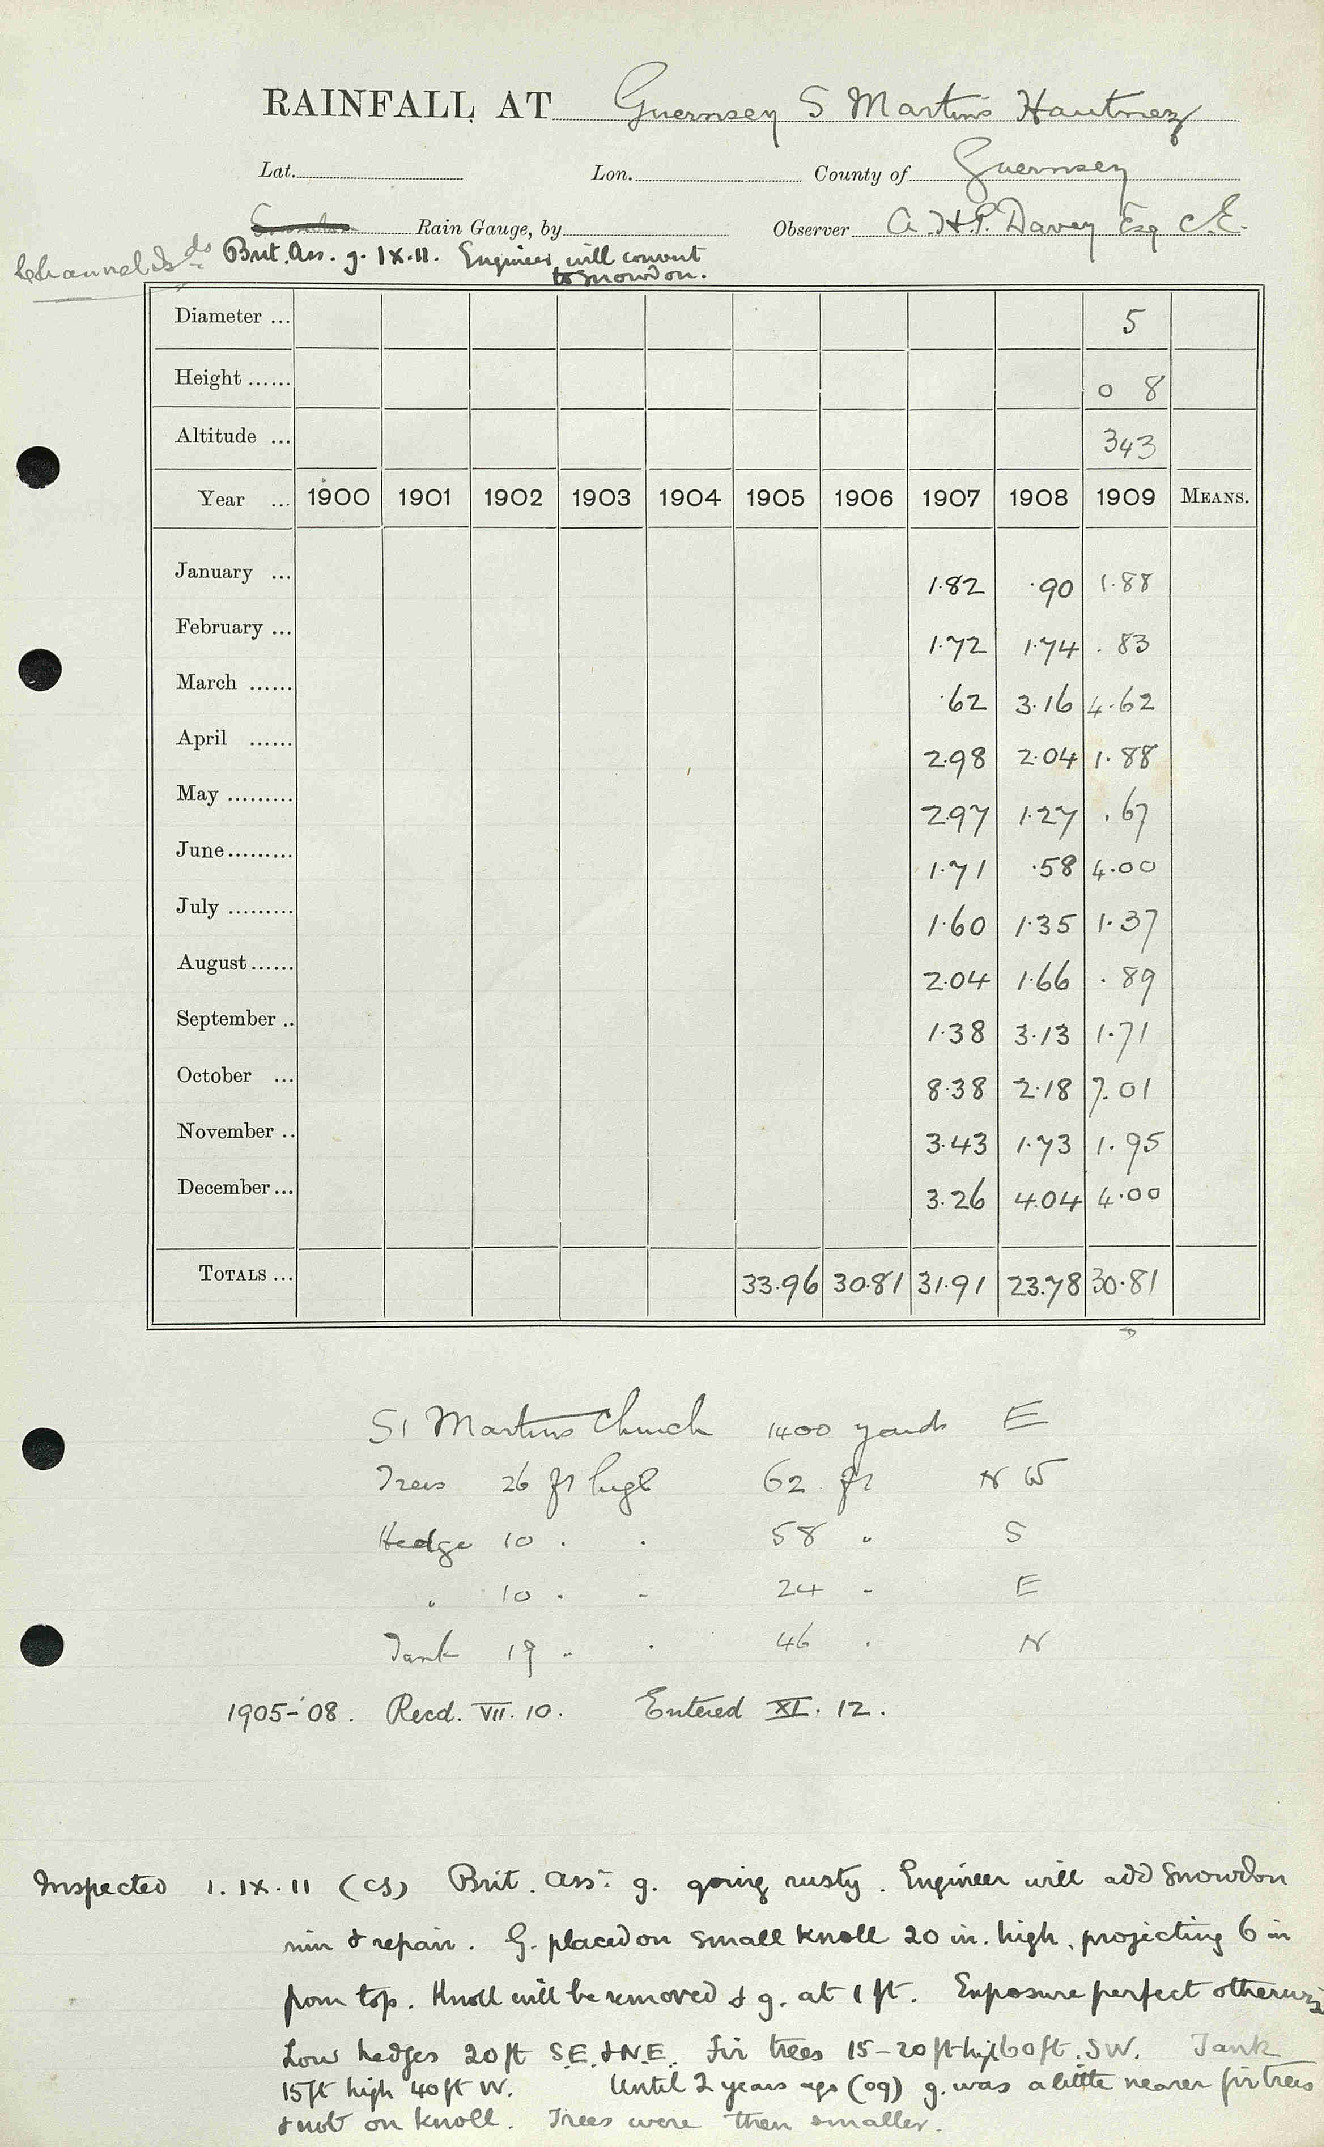 RAINFALL AT Guernsey S Martins Hautnez
Lat. Lon. County of Guernsey
Rain Gauge, by Observer A. H. P. Davey Esq C.E.
Channel Is ds Brit. Ass. g. IX.11. Engineer will convert
to Snowdon.
Diameter ... 5
Height ...... 0 8
Altitude ... 343
Year ... 1900 1901 1902 1903 1904 1905 1906 1907 1908 1909 MEANS.
January ... 1.82 .90 1.88
February ... 1.72 1.74 .83
March ...... .62 3.16 4.62
April ...... 2.98 2.04 1.88
May ......... 2.97 1.27 .67
June......... 1.71 .58 4.00
July ......... 1.60 1.35 1.37
August...... 2.04 1.66 .89
September .. 1.38 3.13 1.71
October ... 8.38 2.18 7.01
November .. 3.43 1.73 1.95
December... 3.26 4.04 4.00
TOTALS ... 33.96 30.81 31.91 23.78 30.81
St Martins Church 1400 yards E
Trees 26 ft high 62 ft N W
Hedge 10 " " 58 " S
" 10 " " 24 " E
Tank 19 " " 46 " N
1905-'08. Recd. VII. 10. Entered XI. 12.
Inspected 1. IX. 11 (CS) Brit. Assn. g. going rusty. Engineer will add Snowdon
rim & repair. G. placed on small knoll 20 in. high, projecting 6 in
from top. Knoll will be removed & g. at 1 ft. Exposure perfect otherwise
Low hedges 20 ft S.E. & N.E. Fir trees 15-20 ft high 60 ft. SW. Tank
15 ft high 40 ft W. Until 2 years ago (09) g. was a little nearer fir trees
& not on knoll. Trees were then smaller.